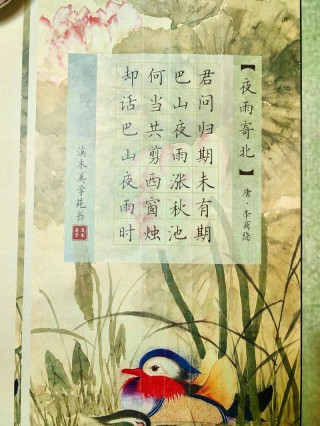 【夜雨寄北】
唐·李商隐
君问归期未有期
巴山夜雨涨秋池
何当共剪西窗烛
却话巴山夜雨时
木美学苑书